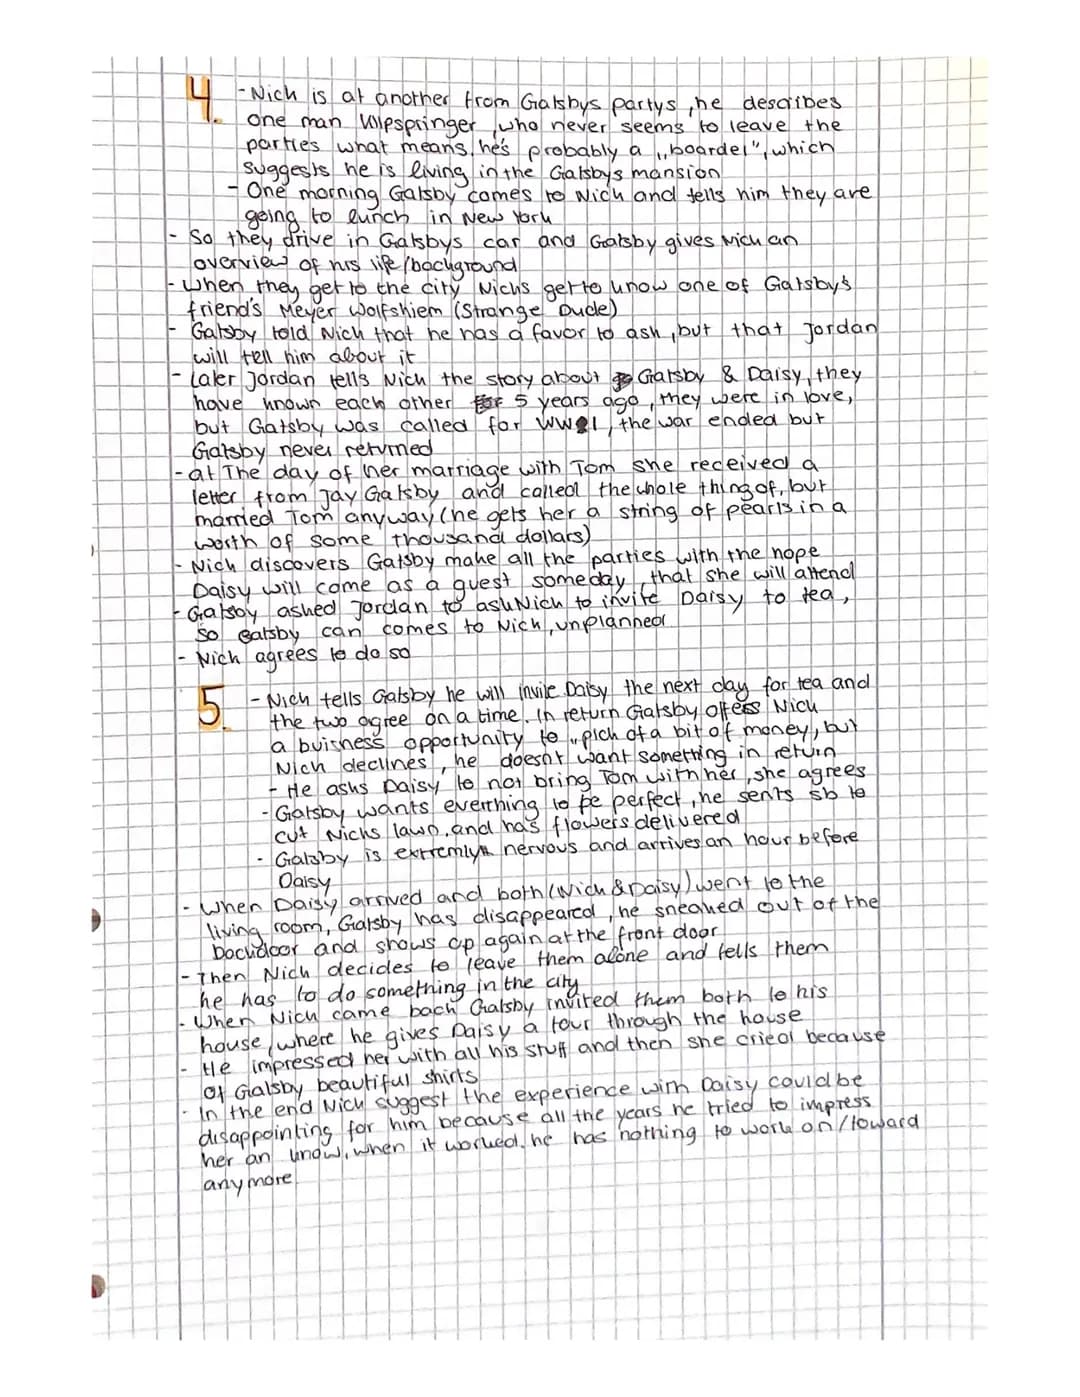 4. - Nick is at another from Gatsbys partys, he describes
one man Klipspringer, who never seems to leave the
parties what means, he's probably a „boarder", which
suggests he is living in the Gatsbys mansion
- One morning Gatsby comes to Nick and tells him they are
going to lunch in New York
- So they drive in Gatsbys car and Gatsby gives Nick an
overview of his life/background
- When they get to the city Nicks get to know one of Gatsby's
friend's Meyer Wolfshiem (Strange Dude)
- Gatsby told Nick that he has a favor to ask, but that Jordan
will tell him about it
- Later Jordan tells Nick the story about Gatsby & Daisy, they
have known each other for 5 years ago, they were in love,
but Gatsby was called for WW1, the war ended but
Gatsby never returned
- at The day of her marriage with Tom she received a
letter from Jay Gatsby and called the whole thing of, but
married Tom anyway (he gets her a string of pearls in a
worth of some thousand dollars)
- Nick discovers Gatsby make all the parties with the hope
Daisy will come as a guest someday, that she will attend
- Gatsby asked Jordan to ask Nick to invite Daisy to tea,
so Gatsby can comes to Nick, unplanned
- Nick agrees to do so
5. - Nick tells Gatsby he will invite Daisy the next day for tea and
the two agree on a time. In return Gatsby offers Nick
a buisness opportunity to „pick of a bit of money, but
Nick declines, he doesnt want something in return
- He asks Daisy to not bring Tom with her, she agrees
- Gatsby wants everthing to be perfect, he sents sb to
cut Nicks lawn, and has flowers delivered
- Gatsby is extremly nervous and arrives an hour before
Daisy
- When Daisy arrived and both (Nick & Daisy) went to the
living room, Gatsby has disappeared, he sneaked out of the
backdoor and shows up again at the front door
- Then Nick decides to leave them alone and tells them
he has to do something in the city
- When Nick came back Gatsby invited them both to his
house, where he gives Daisy a tour through the house
- He impressed her with all his stuff and then she cried because
of Gatsby beautiful shirts
- In the end Nick suggest the experience with Daisy could be
disappointing for him because all the years he tried to impress
her an know, when it worked, he has nothing to work on/toward
anymore